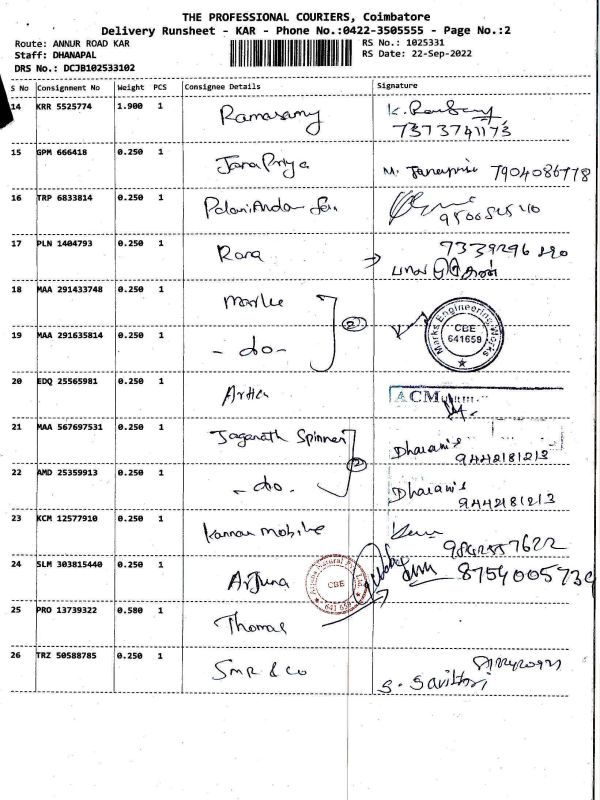 THE PROFESSIONAL COURIERS, Coimbatore
Delivery Runsheet - KAR - Phone No.:0422-3505555 - Page No.:2
Route: ANNUR ROAD KAR
RS No.: 1025331
Staff: DHANAPAL
RS Date: 22-Sep-2022
DRS No.: DCJB102533102
S No Consignment No Weight PCS Consignee Details Signature
14 KRR 5525774 1.900 1 Ramasamy
7373741173
15 GPM 666418 0.250 1 JanaPriya M. Janapriya 7904086778
16 TRP 6833814 0.250 1
17 PLN 1404793 0.250 1 Rara
18 MAA 291433748 0.250 1
19 MAA 291635814 0.250 1 - do -
2
Marks Engineering Works
CBE
641659
20 EDQ 25565981 0.250 1
ACM
21 MAA 567697531 0.250 1 Jaganath Spinners
Dharani's
9442181213
22 AMD 25359913 0.250 1 - do -
2
Dharani's
9442181213
23 KCM 12577910 0.250 1 Kannan mobile
9842557622
24 SLM 303815440 0.250 1 Arjuna
Arjuna Natural Pvt. Ltd
CBE
641 659
25 PRO 13739322 0.580 1 Thomas
26 TRZ 50588785 0.250 1 SMR & Co
S. Savithri